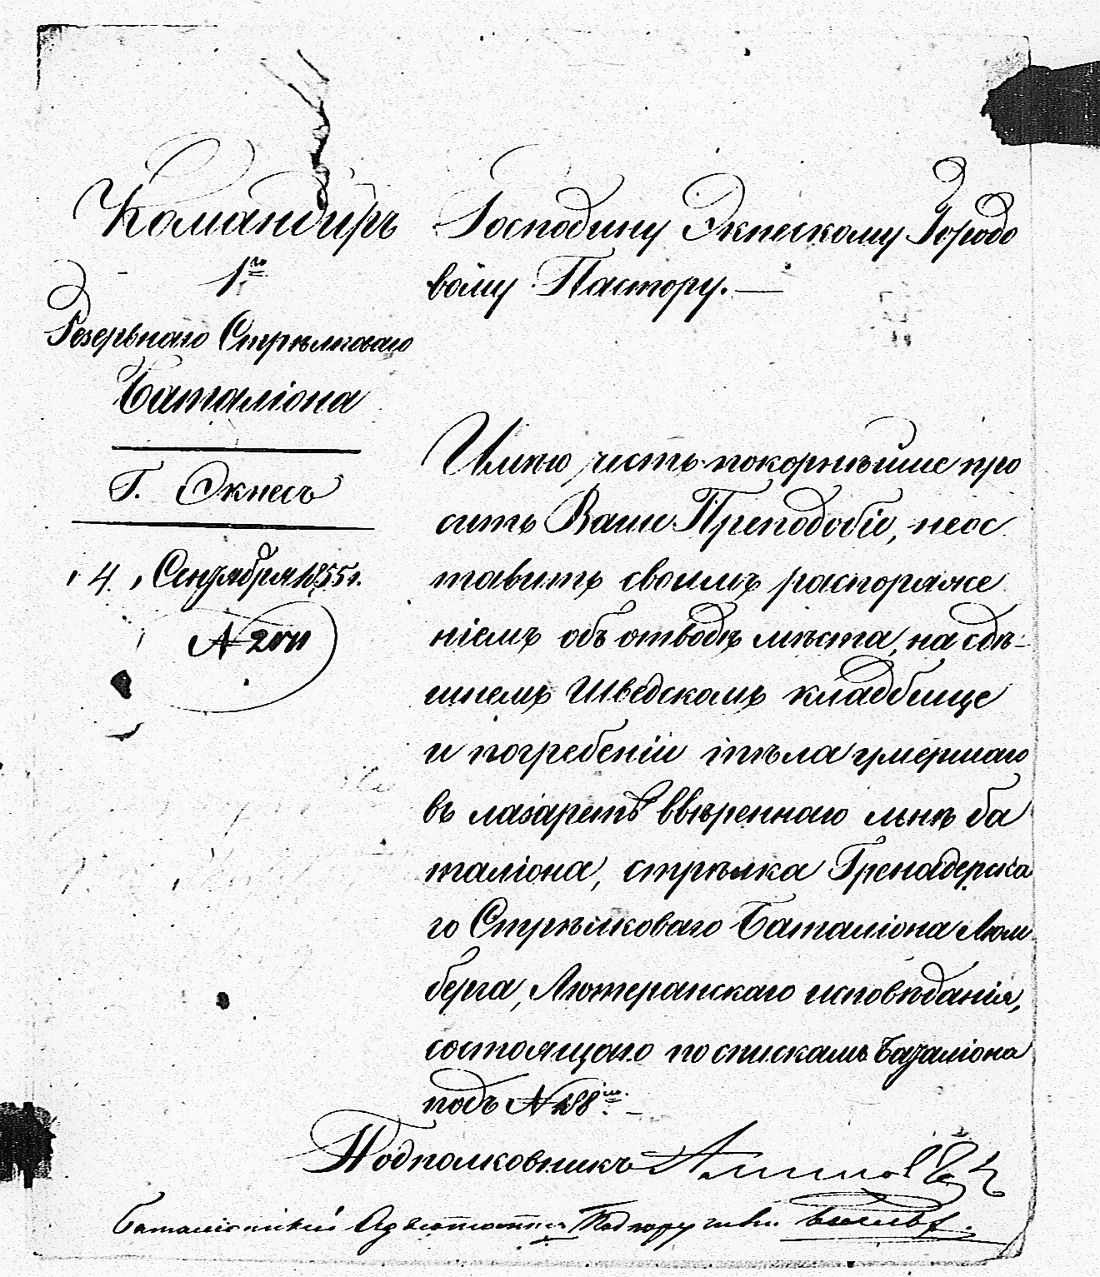 Командиръ
1го
Резервнаго Стрѣлковаго
Баталіона
Г. Экнесъ
„ 4 „ Сентября 1855 г.
№
Господину Экнескому Городо
вому Пастору. —
Имѣю честь покорнѣйше про
сить Ваше Преподобіе, неос
тавить своимъ распоряже
ніемъ объ отводѣ мѣста, на сдѣ-
шнемъ Шведскомъ кладбище
и погребеніи тѣла умершаго
въ лазаретѣ ввѣреннаго мнѣ ба
таліона, стрѣлка Гренадерска
го Стрѣлковаго Баталіона Люм
берга, Лютеранскаго исповѣданія,
состоящаго по спискамъ Баталіона
подъ № 188мъ. —
Подполковникъ
Баталіонный Адъютантъ Подпоручикъ